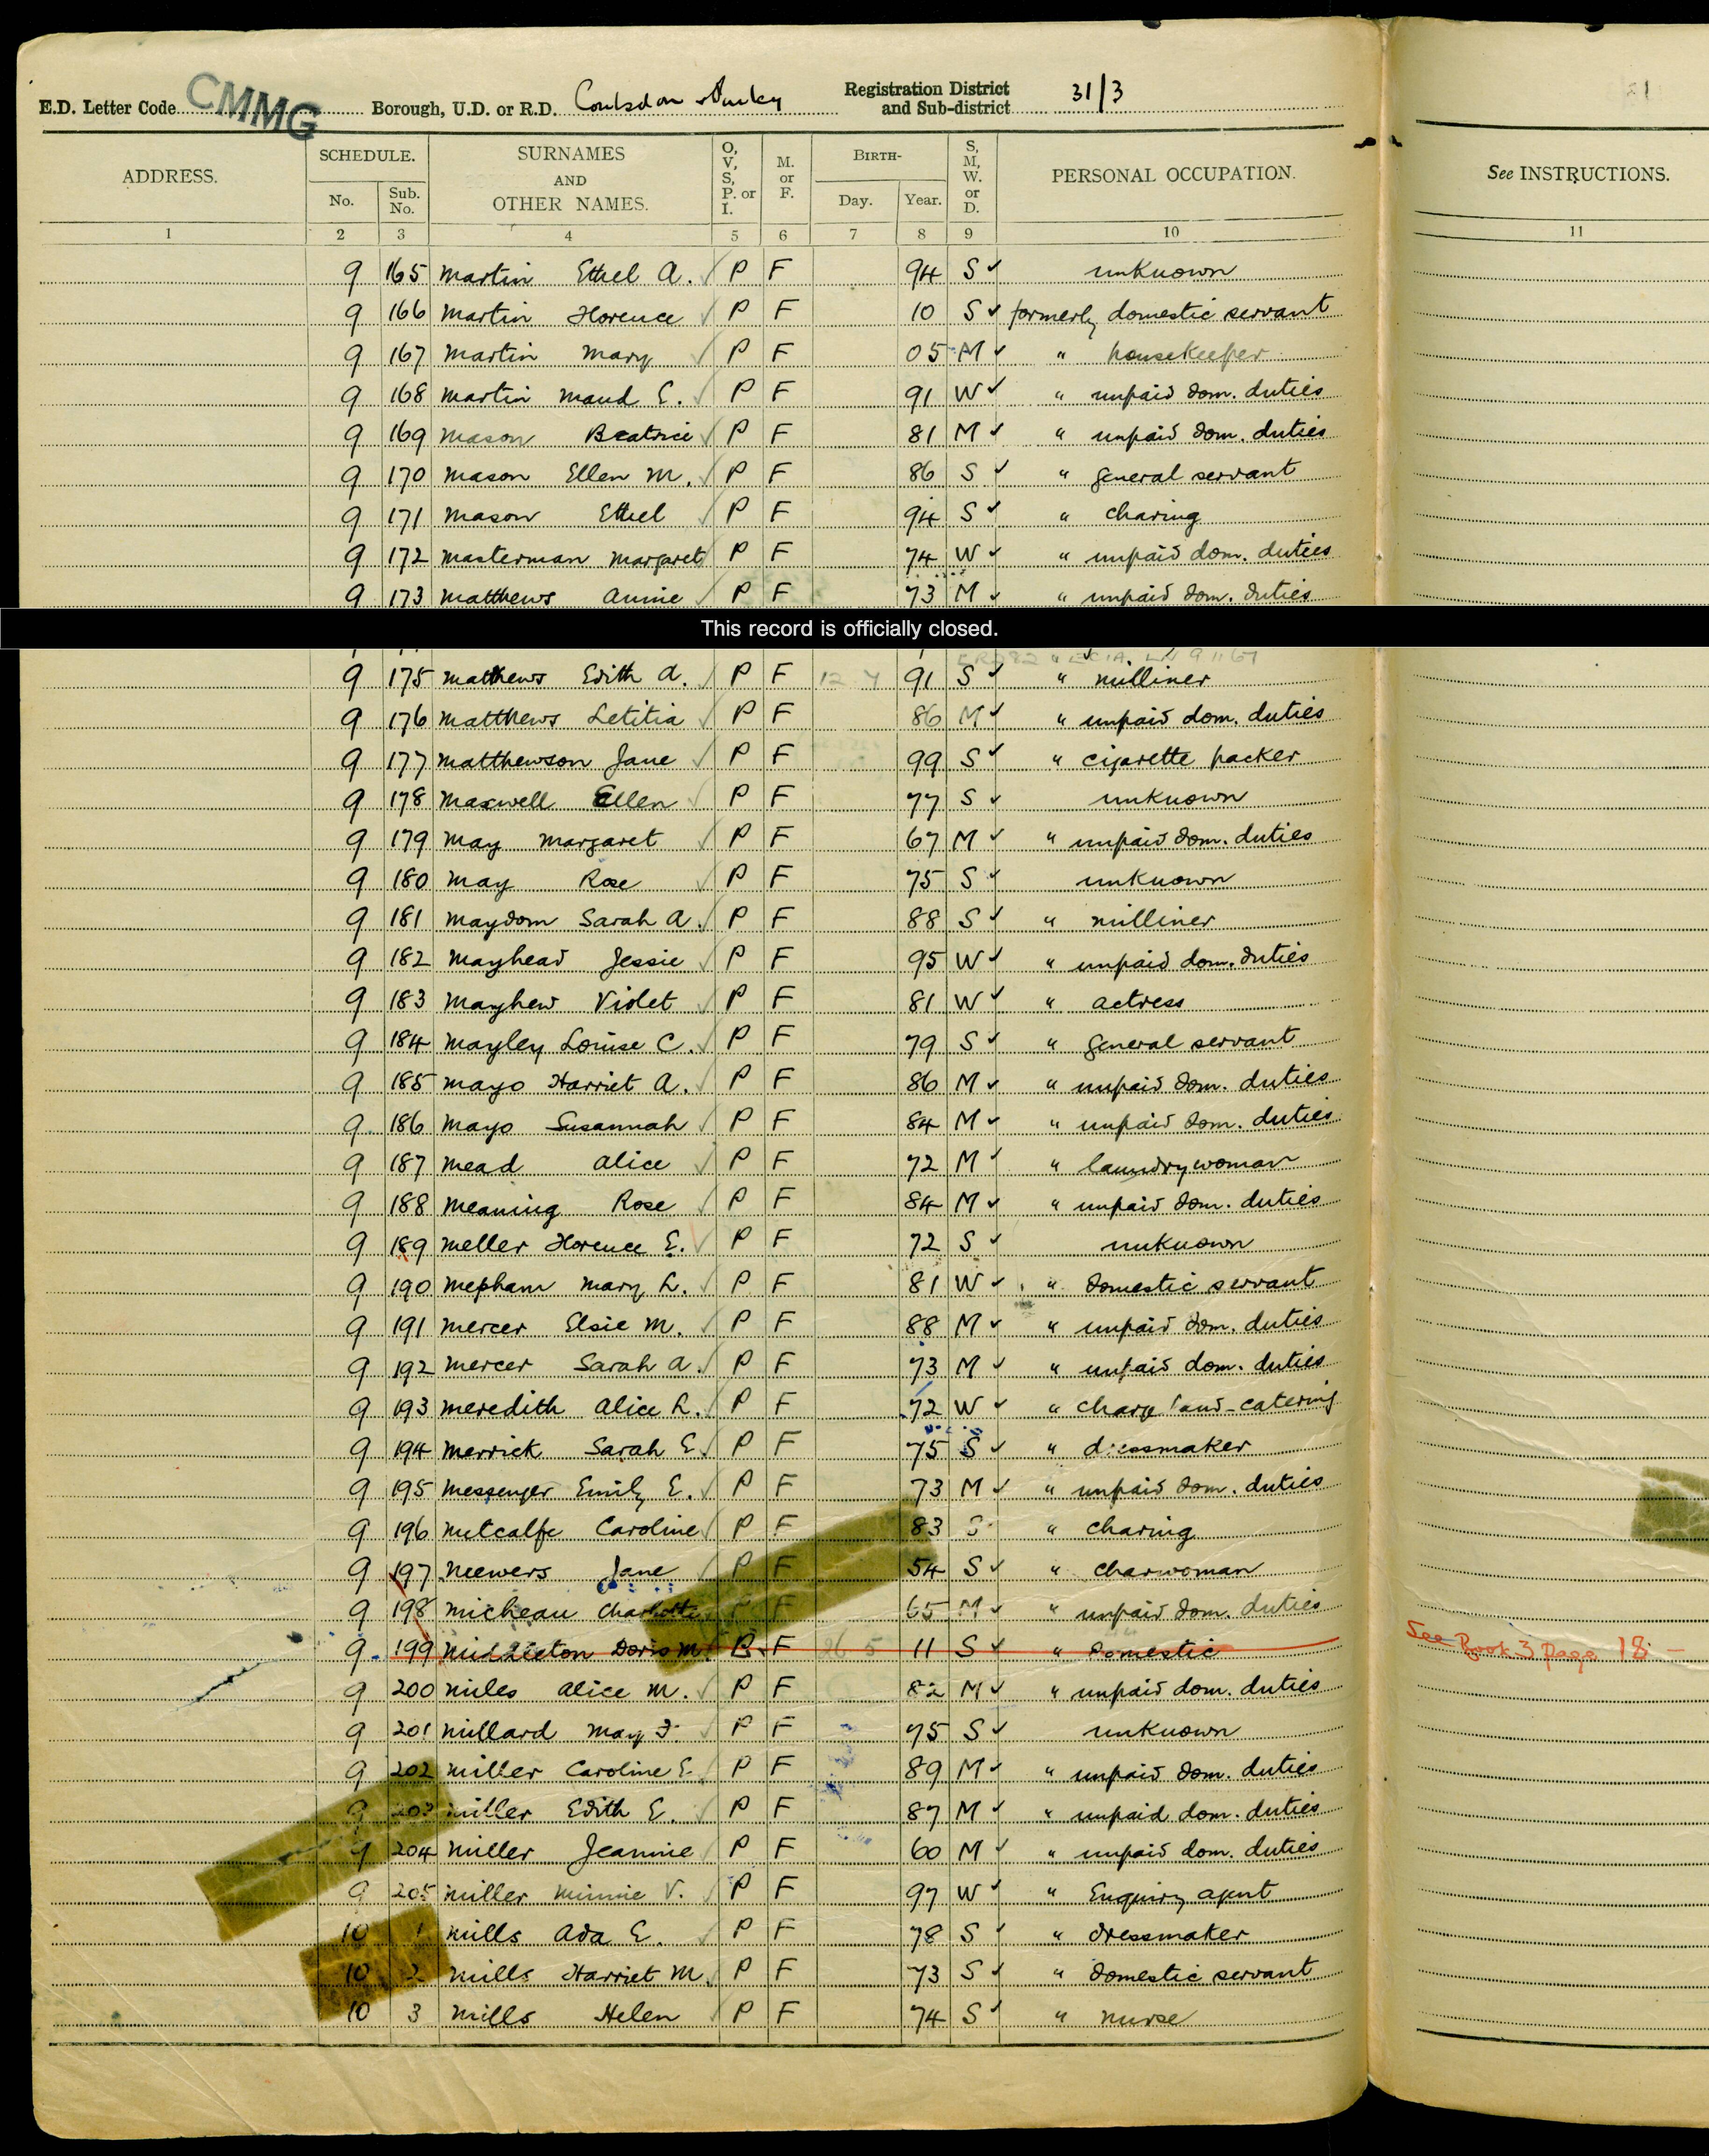 E.D. Letter Code CMMG Borough, U.D. or R.D. Coulsdon & Purley Registration District and Sub-district 31/3
ADDRESS. SCHEDULE. No. Sub. No. SURNAMES AND OTHER NAMES. O, V, S, P. or I. M. or F. BIRTH- Day. Year. S, M, W. or D. PERSONAL OCCUPATION. See INSTRUCTIONS.
1 2 3 4 5 6 7 8 9 10 11
9 165 Martin Ethel A. P F 94 S unknown
9 166 Martin Florence P F 10 S formerly domestic servant
9 167 Martin Mary P F 05 M " housekeeper
9 168 Martin Maud E. P F 91 W " unpaid dom. duties
9 169 Mason Beatrice P F 81 M " unpaid dom. duties
9 170 Mason Ellen M. P F 86 S " general servant
9 171 Mason Ethel P F 94 S " charing
9 172 Masterman Margaret P F 74 W " unpaid dom. duties
9 173 Matthews Annie P F 73 M " unpaid dom. duties
This record is officially closed.
9 175 Matthews Edith A. P F 12 7 91 S " milliner
9 176 Matthews Letitia P F 86 M " unpaid dom. duties
9 177 Matthewson Jane P F 99 S " cigarette packer
9 178 Maxwell Ellen P F 77 S unknown
9 179 May Margaret P F 67 M " unpaid dom. duties
9 180 May Rose P F 75 S unknown
9 181 Maydom Sarah A. P F 88 S " milliner
9 182 Mayhead Jessie P F 95 W " unpaid dom. duties
9 183 Mayhew Violet P F 81 W " actress
9 184 Mayley Louise C. P F 79 S " general servant
9 185 Mayo Harriet A. P F 86 M " unpaid dom. duties
9 186 Mayo Susannah P F 84 M " unpaid dom. duties
9 187 Mead Alice P F 72 M " laundrywoman
9 188 Meaning Rose P F 84 M " unpaid dom. duties
9 189 Meller Florence E. P F 72 S unknown
9 190 Mepham Mary L. P F 81 W " domestic servant
9 191 Mercer Elsie M. P F 88 M " unpaid dom. duties
9 192 Mercer Sarah A. P F 73 M " unpaid dom. duties
9 193 Meredith Alice L. P F 72 W " charge hand-catering
9 194 Merrick Sarah E. P F 75 S " dressmaker
9 195 Messenger Emily E. P F 73 M " unpaid dom. duties
9 196 Metcalfe Caroline P F 83 S " charing
9 197 Meewers Jane P F 54 S " charwoman
9 198 Micheau Charlotte P F 65 M " unpaid dom. duties
9 199 Middleton Doris M. P F 26 5 11 S " domestic See Book 3 page 18 -
9 200 Miles Alice M. P F 82 M " unpaid dom. duties
9 201 Millard May F. P F 75 S unknown
9 202 Miller Caroline E. P F 89 M " unpaid dom. duties
9 203 Miller Edith E. P F 87 M " unpaid dom. duties
9 204 Miller Jeannie P F 60 M " unpaid dom. duties
9 205 Miller Minnie V. P F 97 W " Enquiry agent
10 1 Mills Ada E. P F 78 S " dressmaker
10 2 Mills Harriet M. P F 73 S " domestic servant
10 3 Mills Helen P F 74 S " nurse